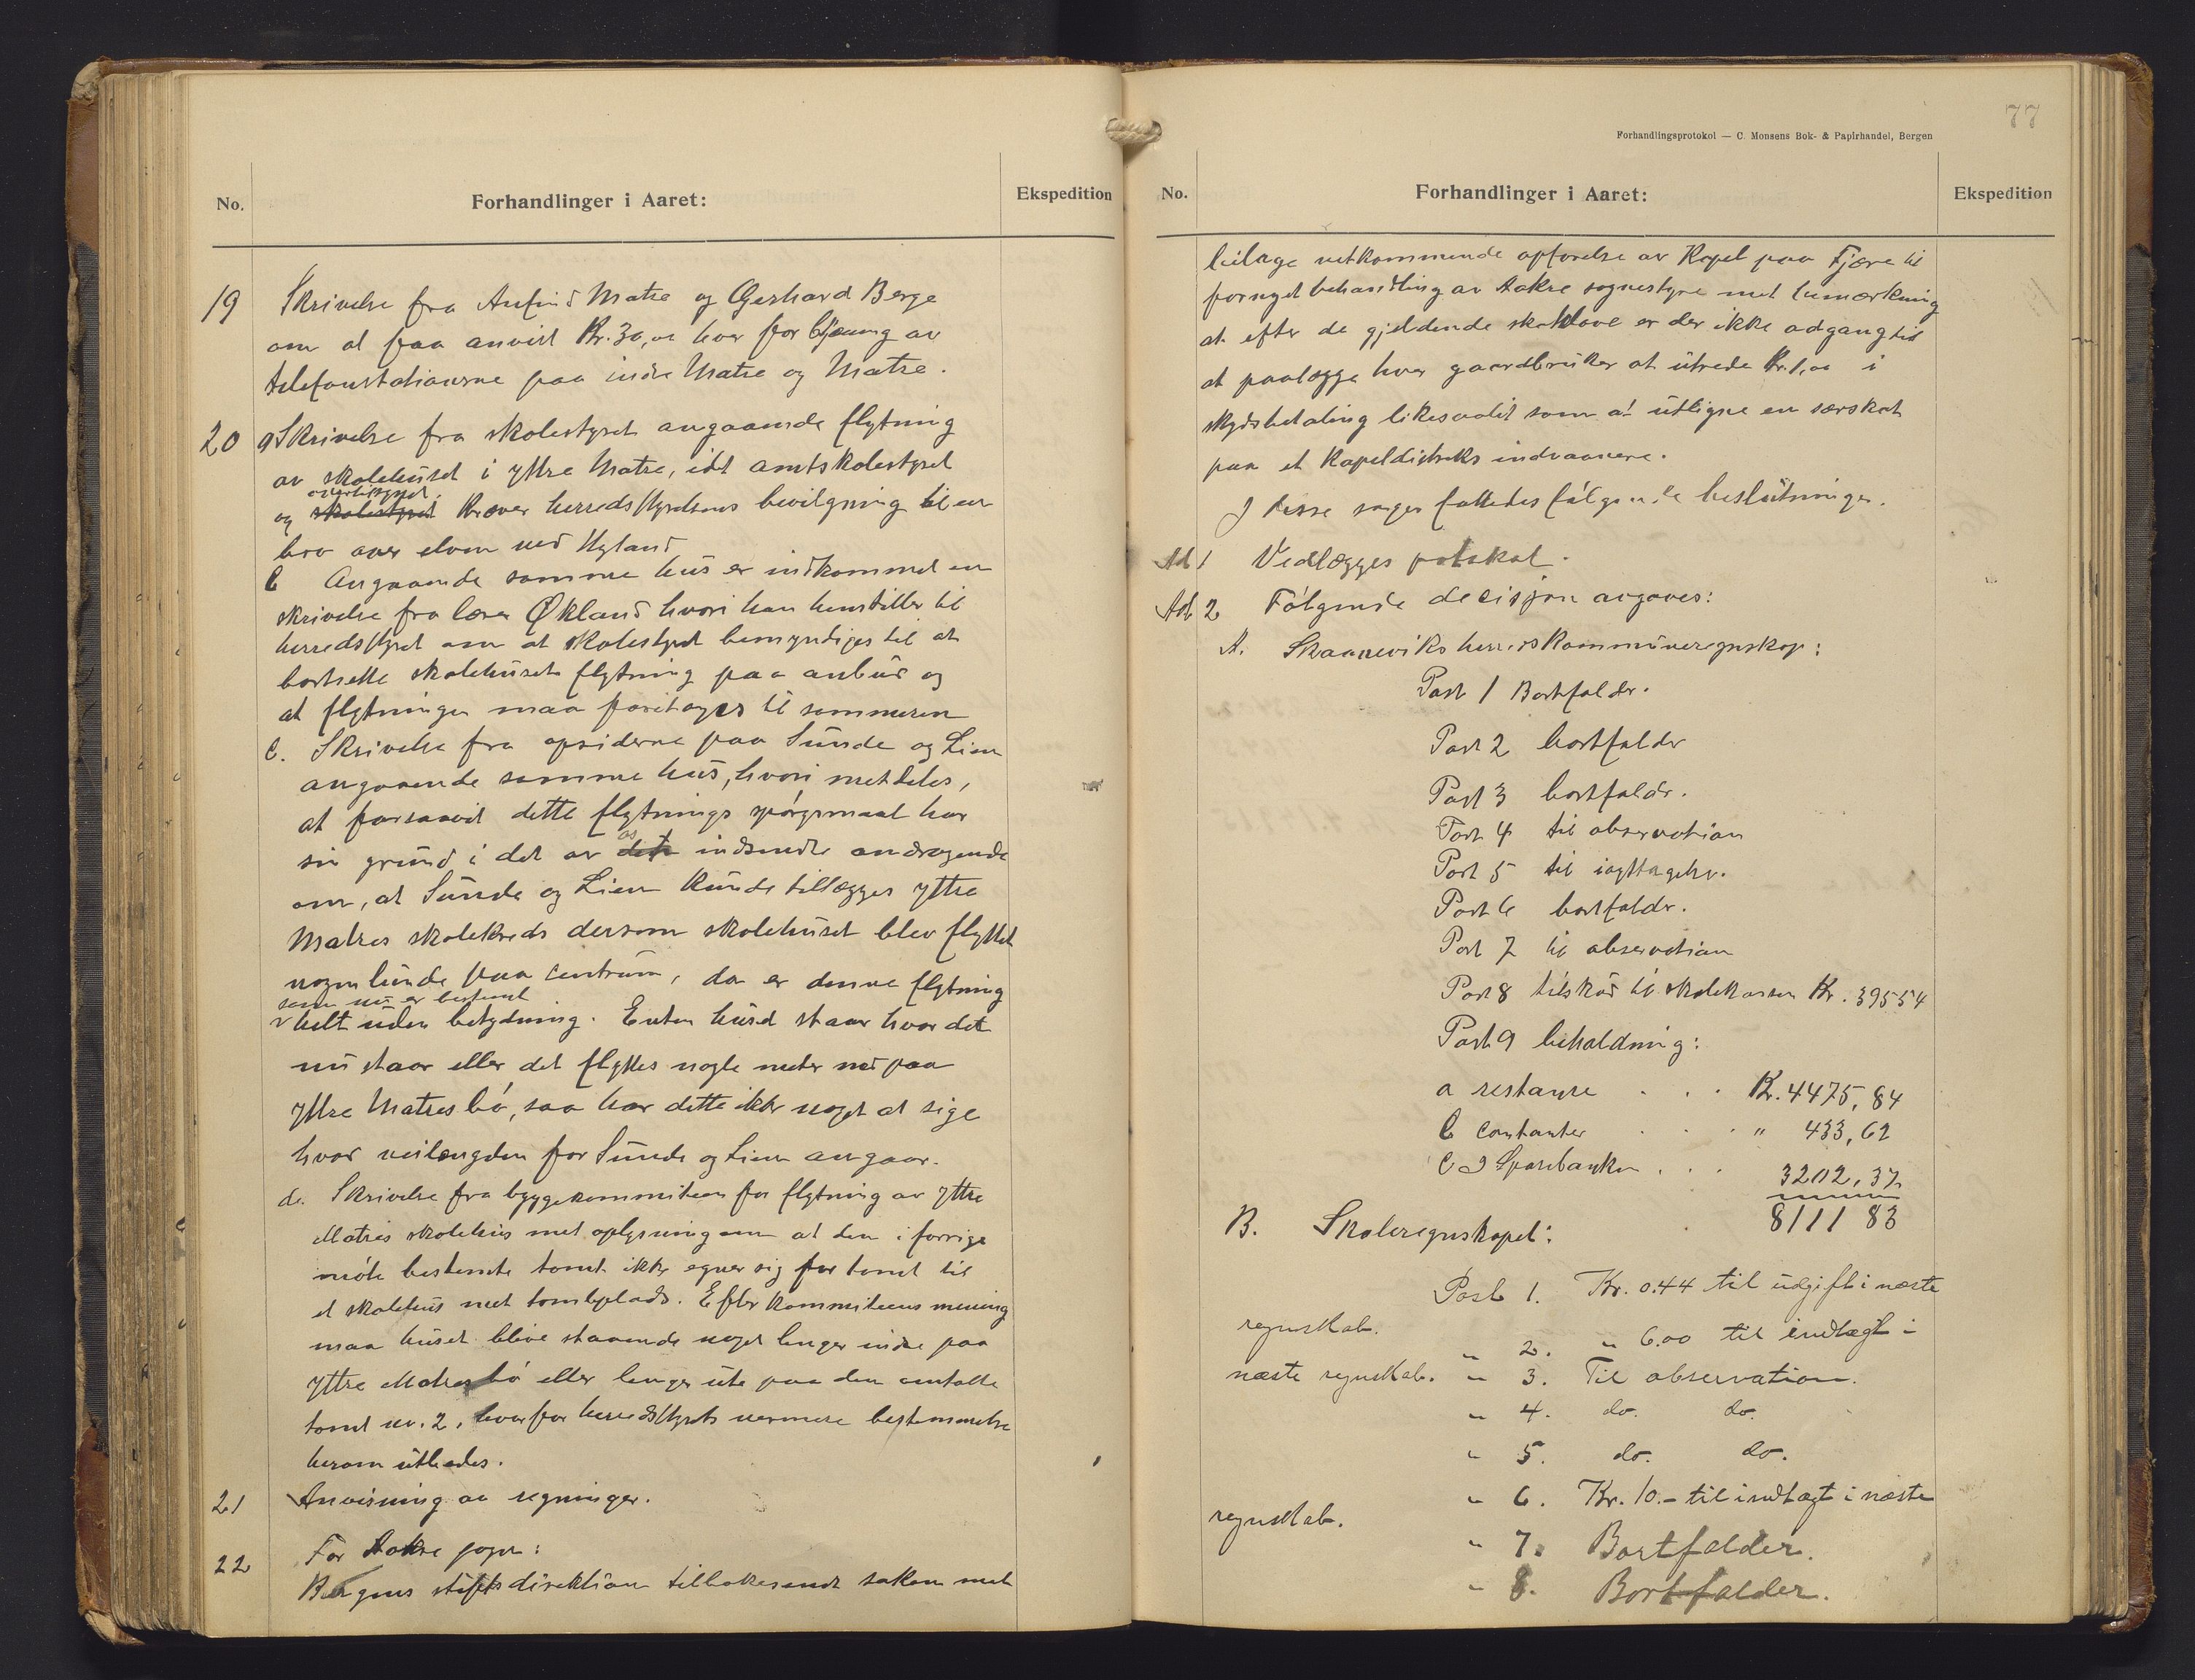 No.
Forhandlinger i Aaret:
Ekspedition
19 Skrivelse fra Anfind Matre og Gerhard Berge
om at faa anvist Kr. 30,00 hver for tjening av
telefonstationerne paa indre Matre og Matre.
20 a Skrivelse fra skolestyret angaaende flytning
av skolehuset i Ytre Matre, idt amtskolestyret
og overtilsynet skolestyret kræver herredsstyrelsens bevilgning til en
bro over elven ved Nyland
b Angaaende samme hus er indkommet en
skrivelse fra lærer Økland hvori han henstiller til
herredsstyret om at skolestyret bemyndiges til at
bortsette skolehusets flytning paa anbud og
at flytningen maa foretages til sommeren
c. Skrivelse fra opsiderne paa Sunde og Lien
angaaende samme hus, hvori meddeles,
at forsaavit dette flytnings spørgsmaal har
sin grund i det av os det indsendte andragende
om, at Sunde og Lien kunde tillægges Ytre
Matres skolekreds dersom skolehuset blev flyttet
nogenlunde paa centrum, da er denne flytning
som nu er bestemt
helt uden betydning. Enten huset staar hvor det
nu staar eller det flyttes nogle meter ned paa
Ytre Matres bø, saa har dette ikke noget at sige
hvad veilængden for Sunde og Lien angaar.
d. Skrivelse fra byggekommiteen for flytning av Ytre
Matres skolehus med oplysning om at den i forrige
møte bestemte tomt ikke egner sig for tomt til
et skolehus med tomteplads. Efter kommiteens mening
maa huset blive staaende noget lenger inde paa
Ytre Matres bø eller lenger ute paa den omtalte
tomt nr. 2, hvorfor herredsstyrets nærmere bestemmelse
herom utbedes.
21 Anvisning av regninger.
22 For Aakre sogn:
Bergens stiftsdirektion tilbakesendt saken med
77
Forhandlingsprotokol — C. Monsens Bok- & Papirhandel, Bergen
No.
Forhandlinger i Aaret:
Ekspedition
bilage vedkommende opførelse av Kapel paa Fjære til
fornyet behandling av Aakre sognestyre med bemærkning
at efter de gjeldende skatelove er der ikke adgang til
at paalægge hver gaardbruker at utrede Kr. 1,00 i
skydsbetaling likesaalit som at utligne en særskat
paa et Kapeldistrikts indvaanere.
I disse sager fattedes følgende beslutninger.
Ad 1 Vedlægges protokol.
Ad 2 Følgende decisjon avgaves:
A. Skaaneviks herredskommuneregnskap:
Post 1 Bortfalder.
Post 2 bortfalder
Post 3 bortfalder.
Post 4 til observation
Post 5 til iagttagelse.
Post 6 bortfalder.
Post 7 til observation
Post 8 tilskud til skolekassen Kr. 3955 4
Post 9 beholdning:
a restanse . . . Kr. 4475,84
b Contanter . . . " 433,62
c I Sparebanken . . . 3202,37
8111 83
B. Skoleregnskapet:
Post 1. Kr. 0.44 til udgift i næste
regnskab.
" 2. " 6.00 til indtægt i
næste regnskab. " 3. Til observation.
" 4. do. do.
" 5. do. do.
" 6. Kr. 10.- til indtægt i næste
regnskab.
" 7. Bortfalder.
" 8. Bortfalder.